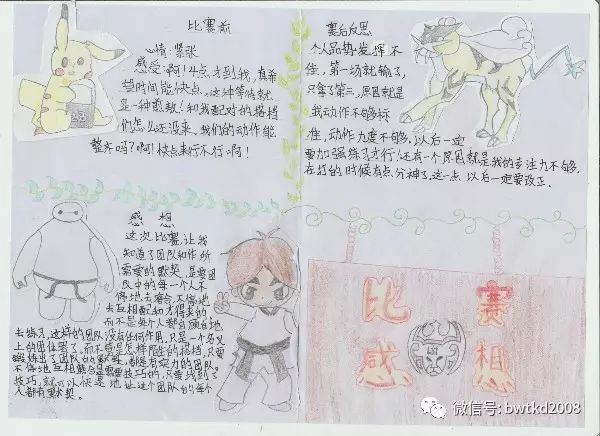 比赛前
心情:紧张
感受:啊!4点才到我,真希
望时间能快点。这种等待就
是一种煎熬!和我配对的搭档
们怎么还没来,我们的动作能
整齐吗?啊!快点来行不行啊!
赛后反思
个人品势发挥不
佳,第一场就输了,
只拿了第三,原因就是
我动作不够标
准,动作力度不够,以后一定
要加强练习才行!还有一个原因就是我的专注力不够,
在打的时候有点分神了,这一点以后一定要改正。
感想
这次比赛,让我
知道了团队和作所
需要的默契,是要团
队中的每一个人不
停地去磨合,不停地
去互相配和才得来的
而不是每个人都各顾各地
去练习,这样的团队没有任何作用,只是一个名义
上的团体罢了,而不管是怎样陌生的搭档,只要
锻炼出了团队的默契,都是有实力的团队。
不停地互相磨合是需要技巧的,只要找到了
技巧,就可以快速地让这个团队的每个
人都有默契。
比赛
感想
微信号: bwtkd2008